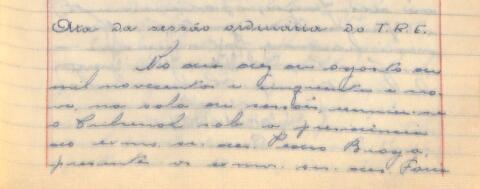 Ata da sessão ordinária do T.R.E.
No dia dez de agosto de
mil novecentos e cinquenta e no-
ve, na sala de sessões, reuniu-se
o Tribunal sob a presidência
do exmo. sr. des. Pedro Braga,
presente os exmos. srs. des. Faria